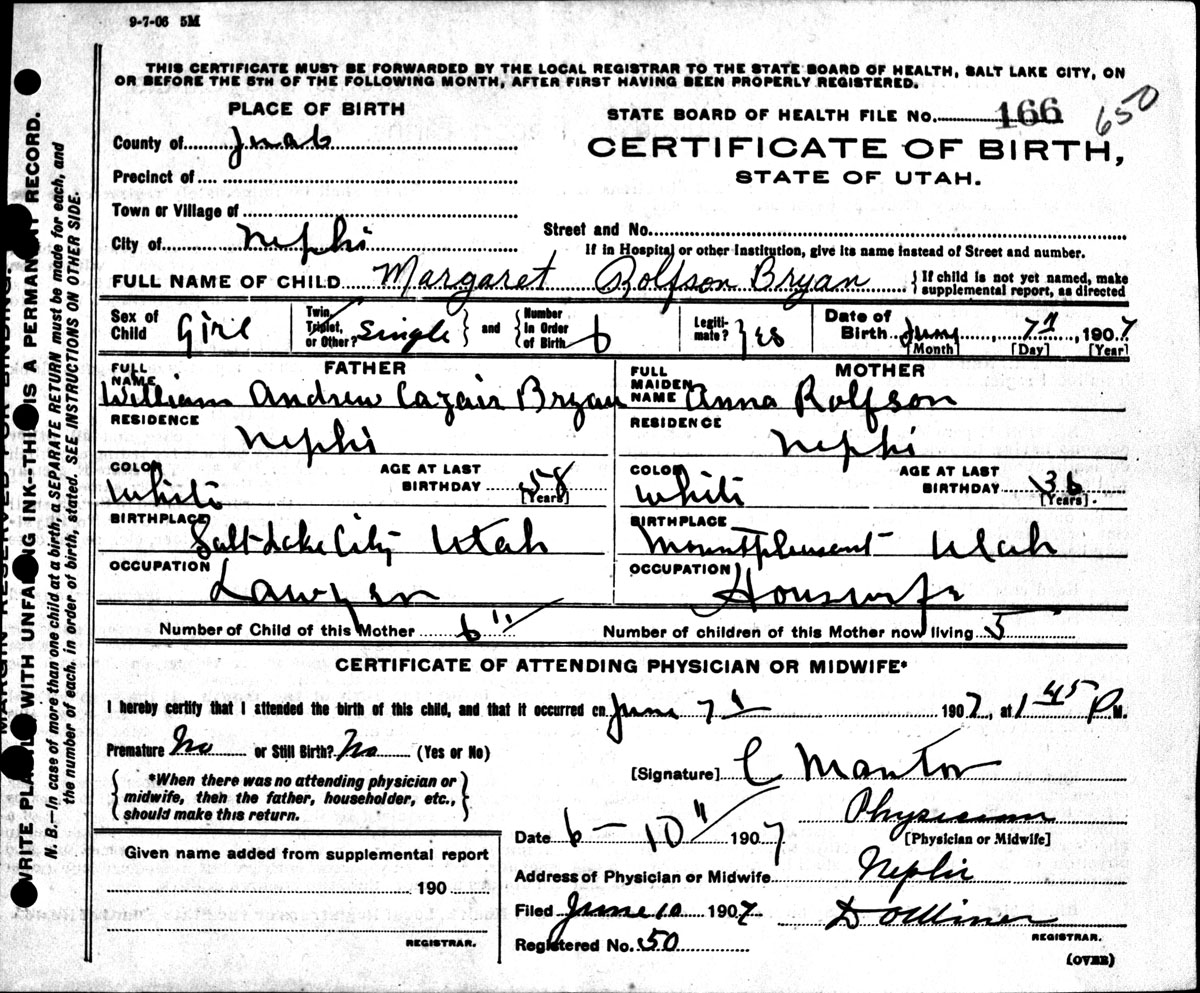 9-7-06 5M
THIS CERTIFICATE MUST BE FORWARDED BY THE LOCAL REGISTRAR TO THE STATE BOARD OF HEALTH, SALT LAKE CITY, ON
OR BEFORE THE 5TH OF THE FOLLOWING MONTH, AFTER FIRST HAVING BEEN PROPERLY REGISTERED.
PLACE OF BIRTH
STATE BOARD OF HEALTH FILE No. 166 650
County of Juab
CERTIFICATE OF BIRTH,
STATE OF UTAH.
Precinct of
Town or Village of
Street and No.
City of Nephi
If in Hospital or other Institution, give its name instead of Street and number.
FULL NAME OF CHILD Margaret Rolfson Bryan { If child is not yet named, make supplemental report, as directed
Sex of Child Girl Twin, Triplet, or Other? Single } and { Number in Order of Birth 6 Legiti-mate? Yes Date of Birth June 7", 1907
[Month] [Day] [Year]
FATHER
MOTHER
FULL NAME William Andrew Cazair Bryan
FULL MAIDEN NAME Anna Rolfson
RESIDENCE Nephi
RESIDENCE Nephi
COLOR White AGE AT LAST BIRTHDAY 58 [Years]
COLOR White AGE AT LAST BIRTHDAY 36 [Years].
BIRTHPLACE Salt-Lake City Utah
BIRTHPLACE Mount Pleasant Utah
OCCUPATION Lawyer
OCCUPATION Housewife
Number of Child of this Mother 6"
Number of children of this Mother now living 5
CERTIFICATE OF ATTENDING PHYSICIAN OR MIDWIFE*
I hereby certify that I attended the birth of this child, and that it occurred on June 7" 1907, at 1 45 P.M.
Premature No or Still Birth? No (Yes or No)
[Signature] C
{ *When there was no attending physician or
midwife, then the father, householder, etc.,
should make this return. }
Physician
[Physician or Midwife]
Date 6-10" 1907
Given name added from supplemental report
190
REGISTRAR.
Address of Physician or Midwife Nephi
Filed June 10 1907
REGISTRAR.
Registered No. 50
(OVER)
MARGIN RESERVED FOR BINDING.
WRITE PLAINLY WITH UNFADING INK--THIS IS A PERMANENT RECORD.
N. B.—In case of more than one child at a birth, a SEPARATE RETURN must be made for each, and
the number of each, in order of birth, stated. SEE INSTRUCTIONS ON OTHER SIDE.